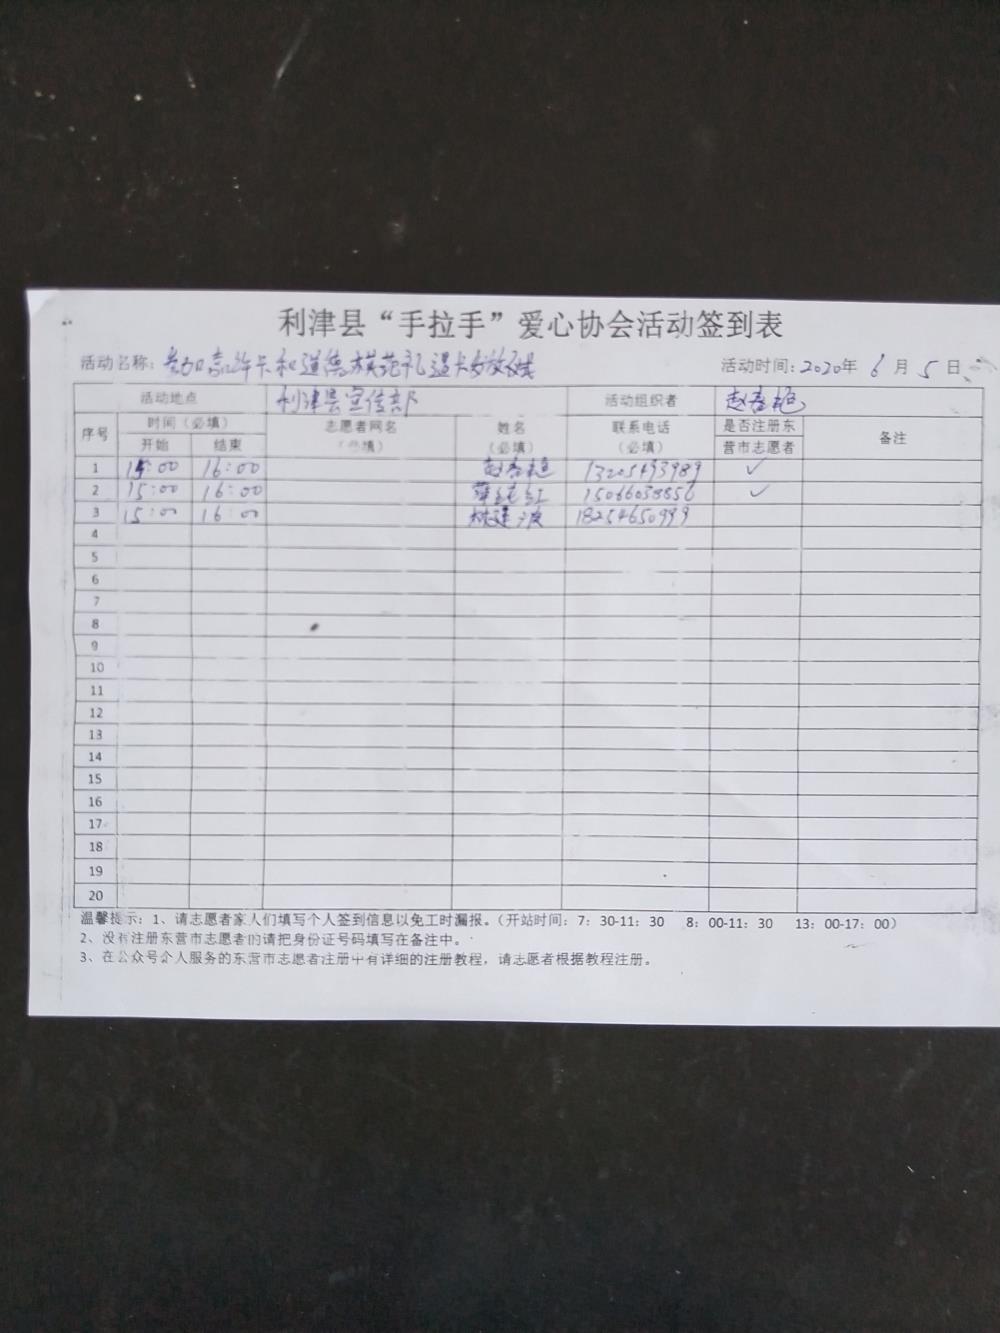 利津县“手拉手”爱心协会活动签到表
活动名称：参加嘉许卡和道德模范礼遇卡发放仪式 活动时间：2020年 6 月 5 日
活动地点 利津县宣传部 活动组织者 赵春艳
序号 时间（必填） 志愿者网名（必填） 姓名（必填） 联系电话（必填） 是否注册东营市志愿者 备注
开始 结束
1 15:00 16:00 赵春艳 13205493989 ✓
2 15:00 16:00 薛红 15066038856 ✓
3 15:00 16:00 建波 18254650999
4
5
6
7
8
9
10
11
12
13
14
15
16
17
18
19
20
温馨提示：1、请志愿者家人们填写个人签到信息以免工时漏报。（开站时间：7：30-11：30 8：00-11：30 13：00-17：00）
2、没有注册东营市志愿者的请把身份证号码填写在备注中。
3、在公众号个人服务的东营市志愿者注册中有详细的注册教程，请志愿者根据教程注册。